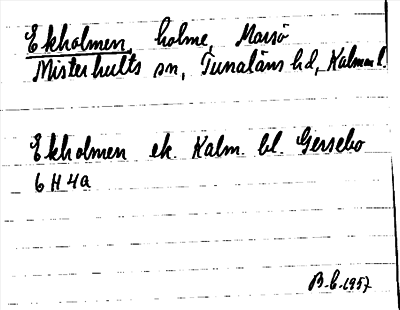 Ekholmen, holme, Marsö
Misterhults sn, Tunaläns hd, Kalmar l.
Ekholmen ek. Kalm. bl. Gersebo
6 H 4a
B.L. 1957